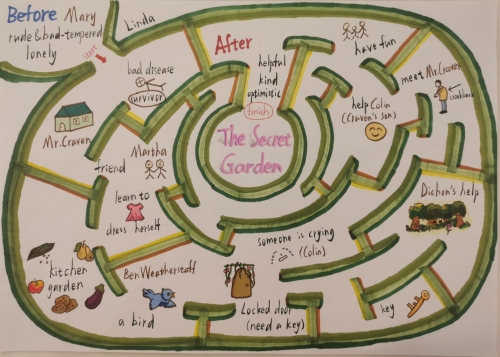 Before Mary
rude & bad-tempered
lonely
start
Linda
bad disease
survivor
Mr. Craven
Martha
friend
learn to
dress herself
kitchen
garden
Ben Weatherstaff
a bird
Locked door
(need a key)
key
Dichon's help
someone is crying
(Colin)
help Colin
(Craven's son)
meet Mr. Craven
crookback
have fun
After
helpful
kind
optimistic
finish
The Secret
Garden